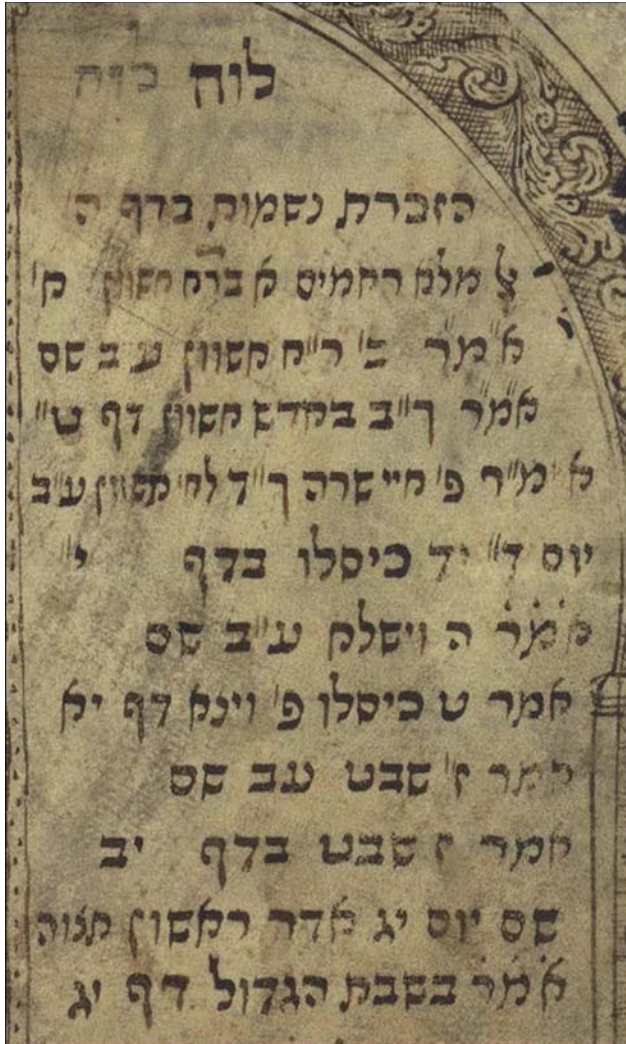 לוח
הזכרת נשמות בדף ה'
אל מלא רחמים א ברח חשוון
א"מ"ר ב' ר"ח חשוון ע"ב שם
א"מ"ר ך"ב בחדש חשוון דף ט"
א"מ"ר פ' חיי שרה ך"ד לח' חשוון ע"ב
יום ד" יד כיסלו בדף י'
אמר ה וישלח ע"ב שם
אמר ט כיסלו פ' ויצא דף יא
אמר ז' שבט עב שם
אמר ז שבט בדף יב
שם יום יג אדר ראשון
אמר בשבת הגדול דף יג